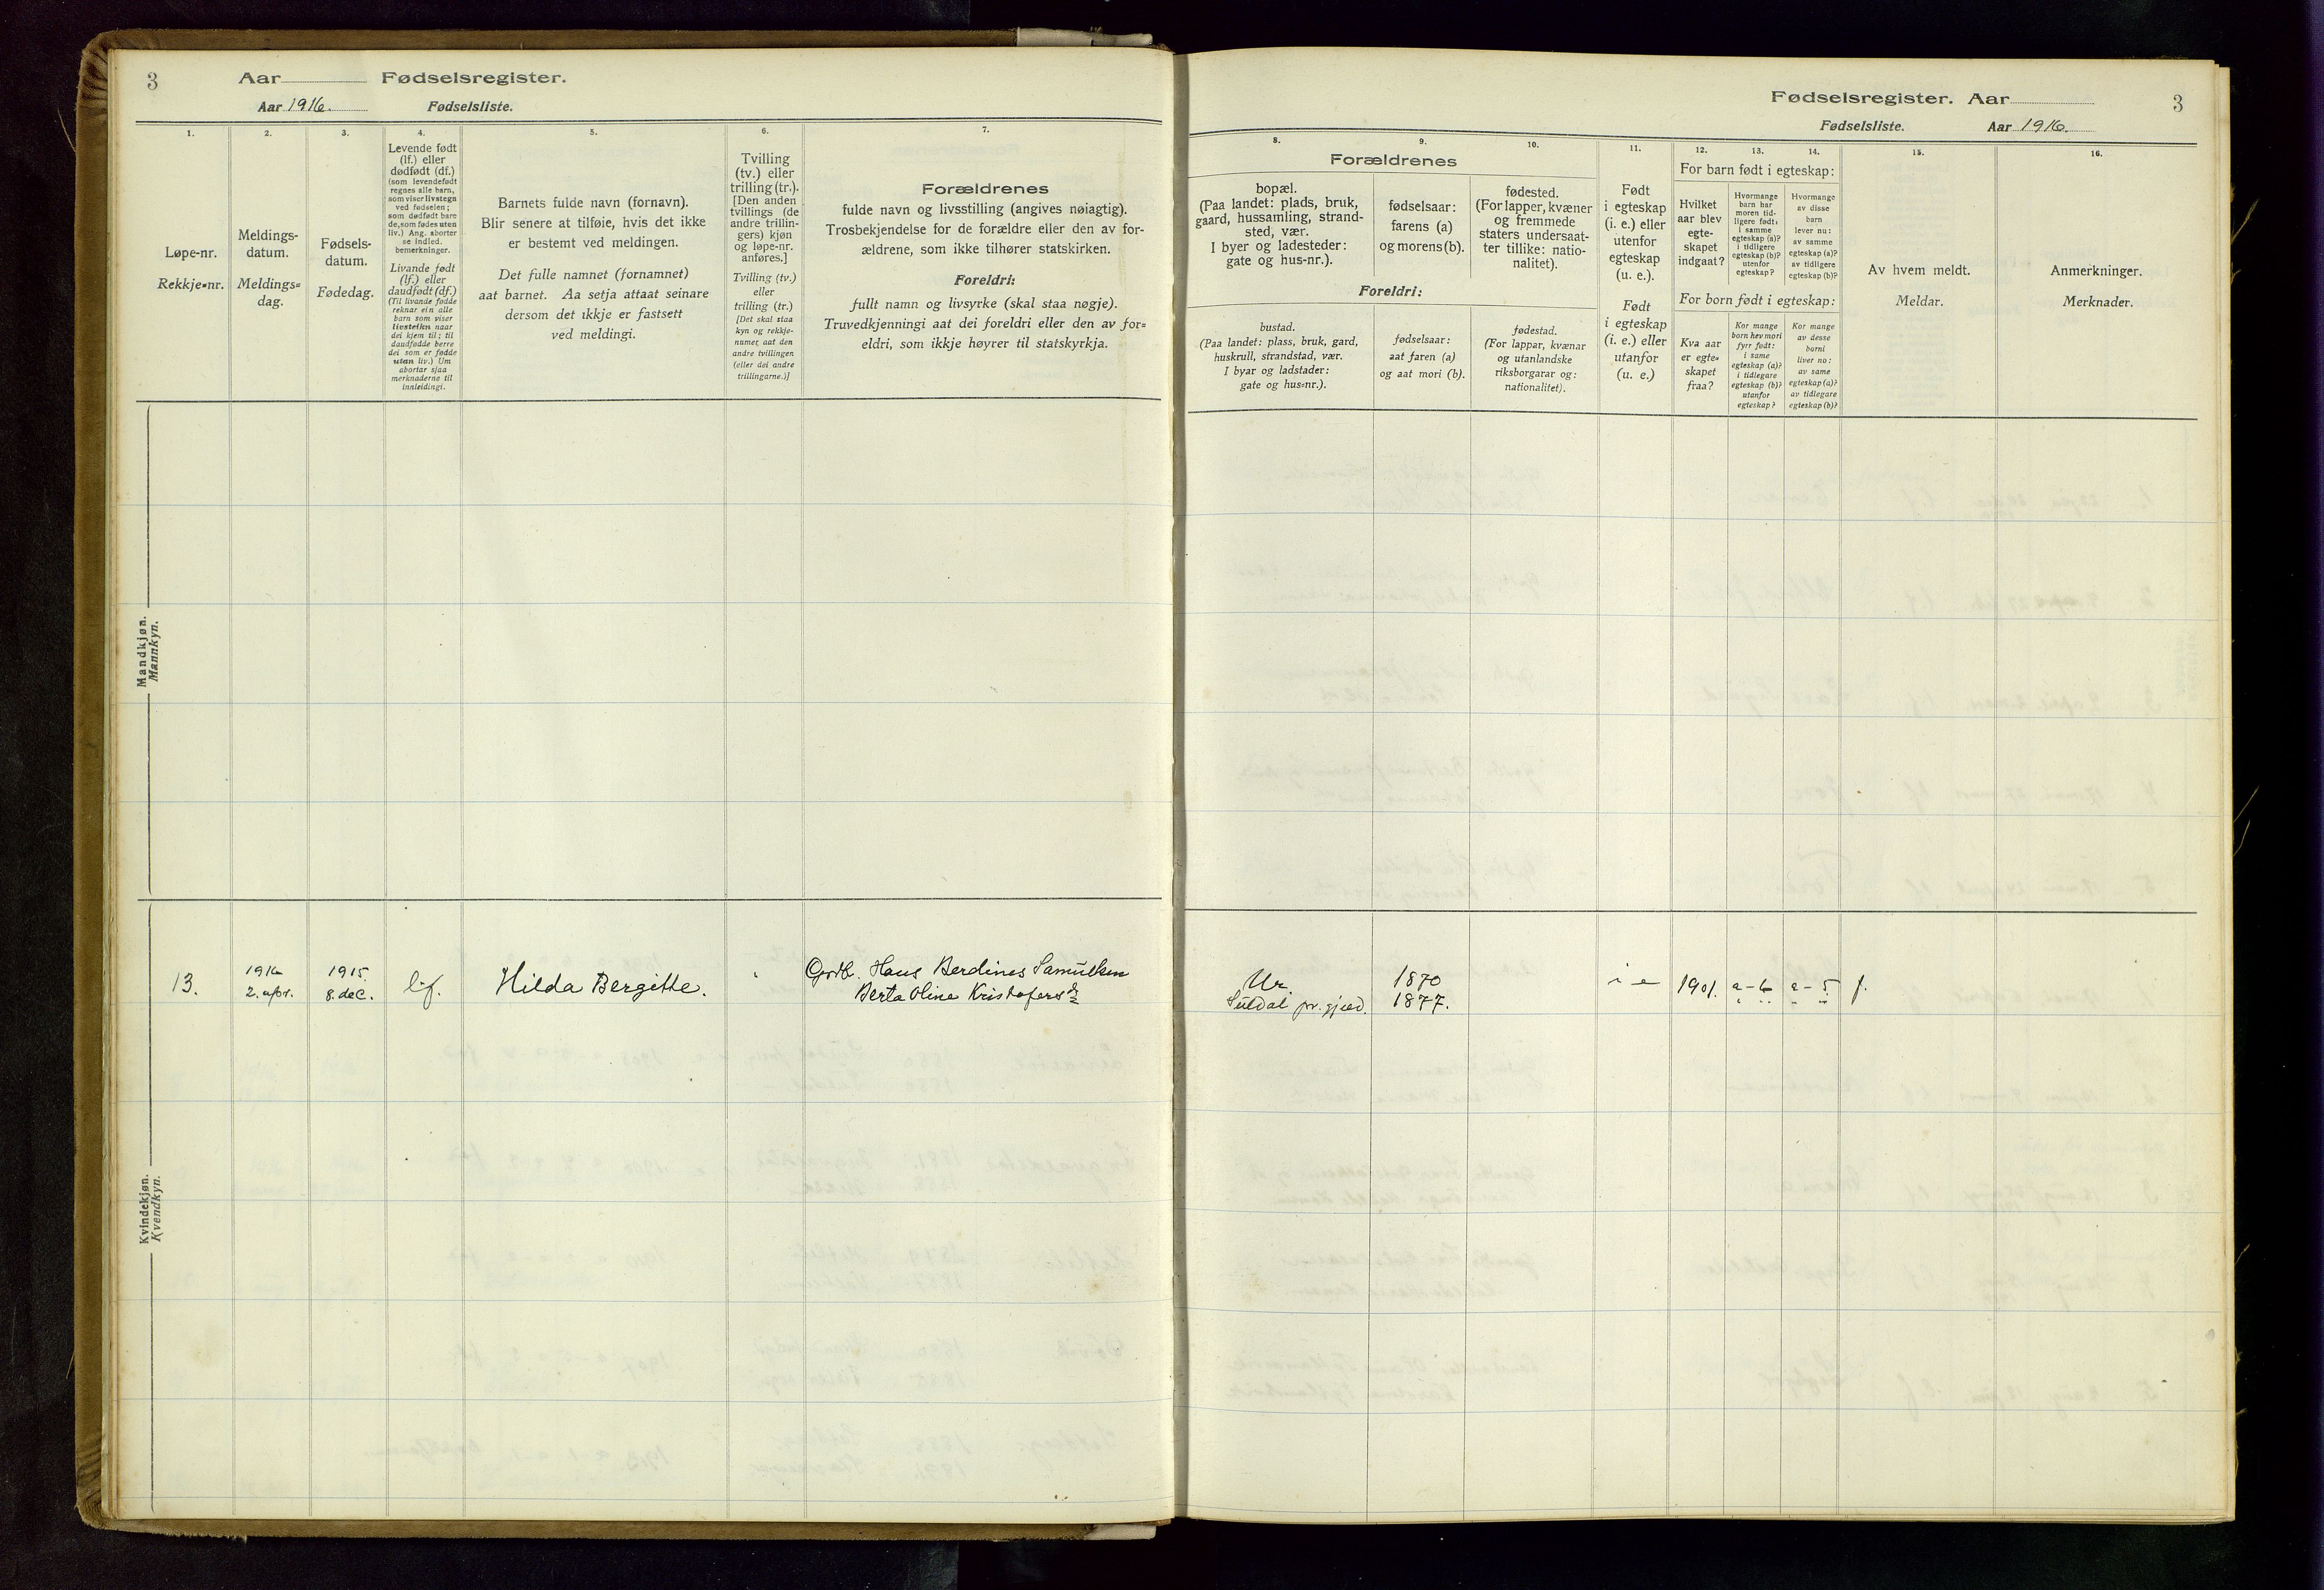 3 Aar Fødselsregister.
Aar 1916. Fødselsliste.
1.
2.
3.
4.
5.
6.
7.
Løpe-nr.
Rekkje=nr.
Meldings-
datum.
Meldings=
dag.
Fødsels-
datum.
Fødedag.
Levende født
(lf.) eller
dødfødt (df.)
(som levendefødt
regnes alle barn,
som viser livstegn
ved fødselen;
som dødfødt bare
de, som fødes uten
liv.) Ang. aborter
se indled.
bemerkninger.
Livande født
(lf.) eller
daudfødt (df.)
(Til livande fødde
reknar ein alle
barn som viser
livsteikn naar
dei kjem til; til
daudfødde berre
dei som er fødde
utan liv.) Um
abortar sjaa
merknaderne til
innleidingi.
Barnets fulde navn (fornavn).
Blir senere at tilføie, hvis det ikke
er bestemt ved meldingen.
Det fulle namnet (fornamnet)
aat barnet. Aa setja attaat seinare
dersom det ikkje er fastsett
ved meldingi.
Tvilling
(tv.) eller
trilling (tr.).
[Den anden
tvillings (de
andre trillin-
gers) kjøn
og løpe-nr.
anføres.]
Tvilling (tv.)
eller
trilling (tr.)
[Det skal staa
kyn og rekkje-
numer aat den
andre tvillingen
(eller dei andre
trillingarne.)]
Forældrenes
fulde navn og livsstilling (angives nøiagtig).
Trosbekjendelse for de forældre eller den av for-
ældrene, som ikke tilhører statskirken.
Foreldri:
fullt namn og livsyrke (skal staa nøgje).
Truvedkjenningi aat dei foreldri eller den av for=
eldri, som ikkje høyrer til statskyrkja.
Mandkjøn.
Mannkyn.
Kvindekjøn.
Kvendkyn.
13.
1916
2. apr.
1915
8. dec.
l.f.
Hilda Bergitte.
Grdb. Hans Berdines Samuelsen
Berta Oline Kristofersd.
Fødselsregister. Aar 3
Fødselsliste. Aar 1916.
8.
9.
10.
11.
12.
13.
14.
15.
16.
Forældrenes
bopæl.
(Paa landet: plads, bruk,
gaard, hussamling, strand-
sted, vær.
I byer og ladesteder:
gate og hus-nr.).
fødselsaar:
farens (a)
og morens (b).
fødested.
(For lapper, kvæner
og fremmede
staters undersaat-
ter tillike: natio-
nalitet).
Foreldri:
bustad.
(Paa landet: plass, bruk, gard,
huskrull, strandstad, vær.
I byar og ladstader:
gate og hus=nr.).
fødselsaar:
aat faren (a)
og aat mori (b).
fødestad.
(For lappar, kvænar
og utanlandske
riksborgarar og:
nationalitet).
Født
i egteskap
(i. e.) eller
utenfor
egteskap
(u. e.).
Født
i egteskap
(i. e.) eller
utanfor
(u. e.)
For barn født i egteskap:
Hvilket
aar blev
egte-
skapet
indgaat?
Hvormange
barn har
moren tid-
ligere født:
i samme
egteskap (a)?
i tidligere
egteskap (b)?
utenfor
egteskap?
Hvormange
av disse
barn
lever nu:
av samme
egteskap (a)?
av tidligere
egteskap (b)?
For born født i egteskap:
Kva aar
er egte=
skapet
fraa?
Kor mange
born hev mori
fyrr født:
i same
egteskap (a)?
i tidlegare
egteskap (b)?
utanfor
egteskap?
Kor mange
av desse
borni
liver no:
av same
egteskap (a)?
av tidlegare
egteskap (b)?
Av hvem meldt.
Meldar.
Anmerkninger.
Merknader.
Ur.
Suldal pr. gjeld.
1870
1877.
i e
1901.
a - 6
a - 5.
f.